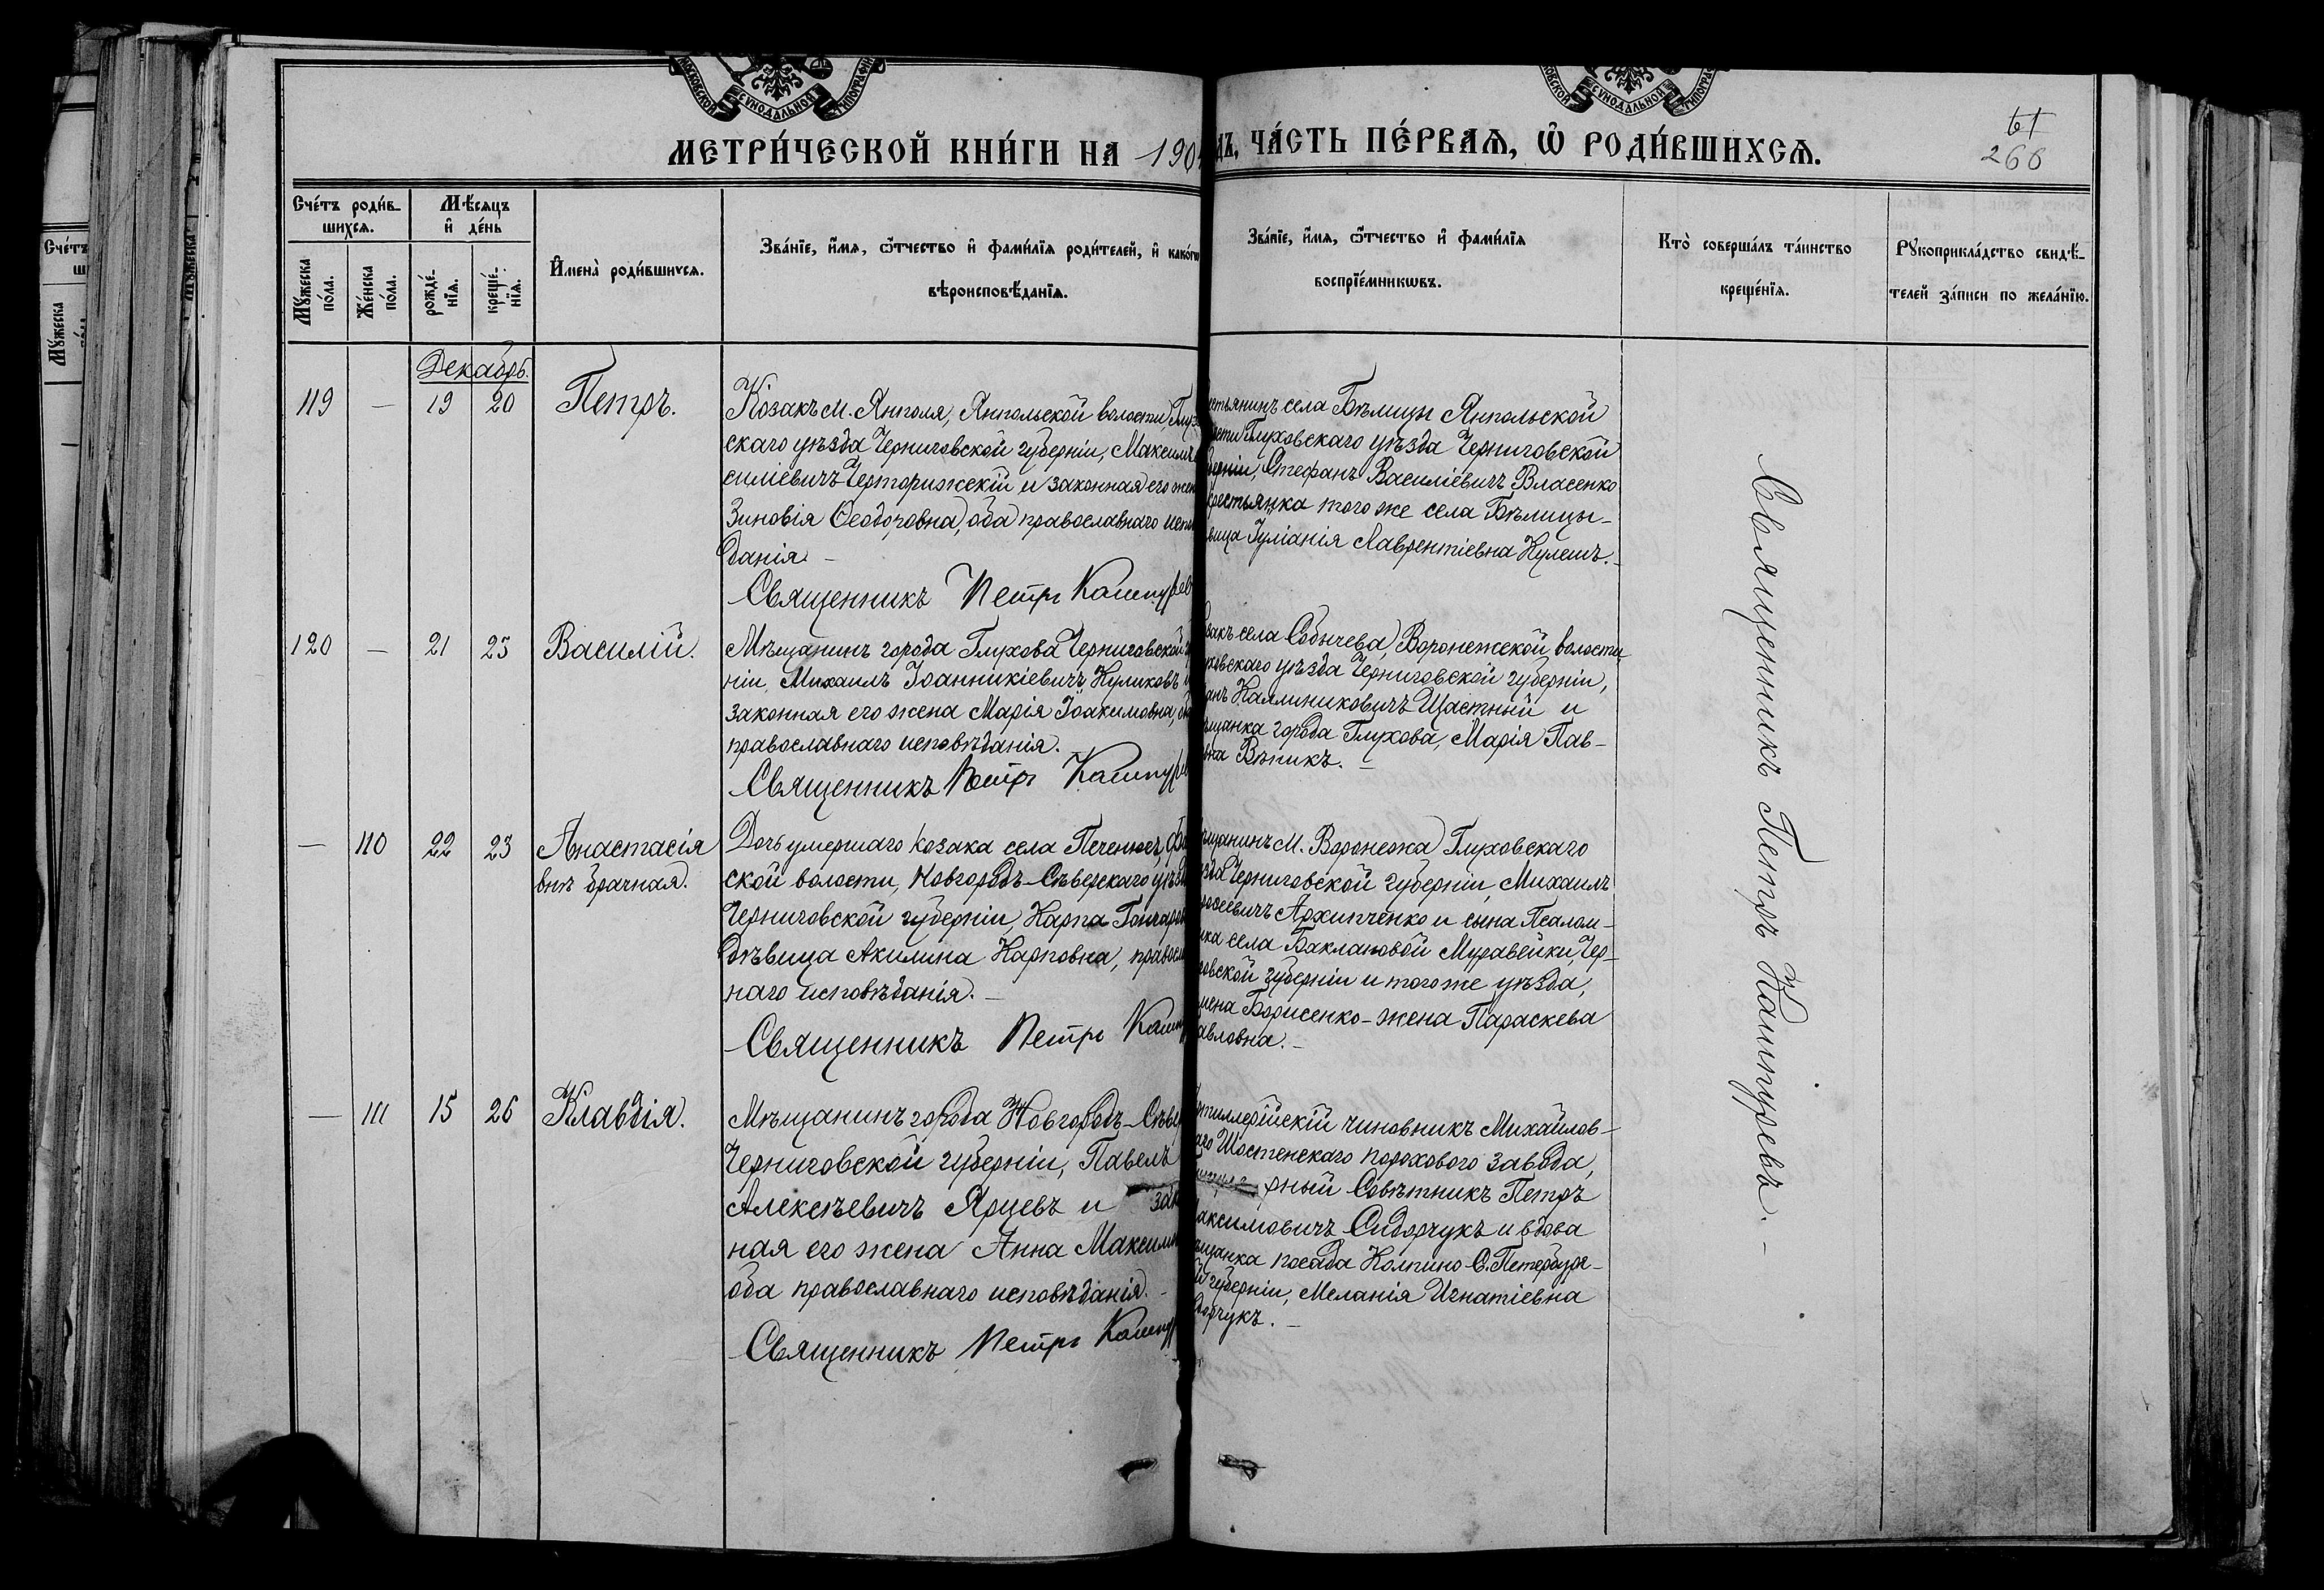 МОСКОВСКОЙ СѴНОДАЛЬНОЙ ТИПОГРАФІИ
МОСКОВСКОЙ СѴНОДАЛЬНОЙ ТИПОГРАФІИ
МЕТРИ́ЧЕСКОЙ КНИ́ГИ НА 190
ДЪ, ЧА́СТЬ ПЕ́РВАѦ, Ѿ РОДИ́ВШИХСѦ.
61
266
Сче́тъ роди́в-
шихсѧ.
Мѣ́сяцъ
и҆ де́нь
Мꙋ́жеска по́ла.
Же́нска по́ла.
рожде́-нїѧ.
креще́-нїѧ.
И҆мена̀ роди́вшихсѧ.
Зва́нїе, и҆́мѧ, ѻ҆́тчество и҆ фами́лїѧ роди́телей, и҆ како́гѡ
вѣроисповѣ́данїѧ.
Зва́нїе, и҆́мѧ, ѻ҆́тчество и҆ фами́лїѧ
воспрїе́мникѡвъ.
Кто̀ соверша́лъ та́инство
креще́нїѧ.
Рꙋкоприкла́дство свидѣ́-
телей за́писи по жела́нїю.
Декабрь.
119 — 19 20 Петръ.
Козакъ м. Янполя, Янпольской волости, Глухов
скаго уѣзда Черниговской губерніи, Максимъ
силіевичъ Черторижскій и законная его жен
Зиновія Ѳеодоровна, оба православнаго испо
данія. —
Священникъ Петръ Кашпурев
стьянинъ села Бѣлицы Янпольской
ости Глуховскаго уѣзда Черниговской
берніи, Стефанъ Василіевичъ Власенко
крестьянка того же села Бѣлицы —
вица Іуліанія Лаврентіевна Кулешъ. —
120 — 21 25 Василій.
Мѣщанинъ города Глухова Черниговской
ніи, Михаилъ Іоанникіевичъ Куликовъ и
законная его жена Марія Іоакимовна, оба
православнаго исповѣданія.
Священникъ Петръ Кашпурев
закъ села Собычева, Воронежской волости,
ховскаго уѣзда Черниговской губерніи,
анъ Каллиниковичъ Щастный и
щанка города Глухова, Марія Пав-
вна Вѣникъ. —
— 110 22 23 Анастасія
внѣ брачная.
Дочь умершаго козака села Печенюгъ,
ской волости, Новгородъ-Сѣверскаго уѣзд
Черниговской губерніи, Карпа Гончаров
дѣвица Акилина Карповна, правосл
наго исповѣданія. —
Священникъ Петръ Кашп
щанинъ м. Воронежа Глуховскаго
зда Черниговской губерніи, Михаилъ
осеевичъ Архипченко и сына Псалом-
ка села Баклановой Муравейки, Чер-
говской губерніи и того же уѣзда,
мена Борисенко - жена Параскева
авловна. —
— 111 15 26 Клавдія.
Мѣщанинъ города Новгородъ-Сѣвер
Черниговской губерніи, Павелъ
Алексѣевичъ Ярцевъ и зак
ная его жена Анна Максим
оба православнаго исповѣданія. —
Священникъ Петръ Кашпур
ртиллерійскій чиновникъ Михайлов-
аго Шостенскаго порохового завода,
рный Совѣтникъ Петръ
аксимовичъ Сидорчукъ и вдова
щанка посада Колпино С.Петербург-
й губерніи, Меланія Игнатіевна
дорчукъ. —
Священникъ Петръ Кашпуревъ. —